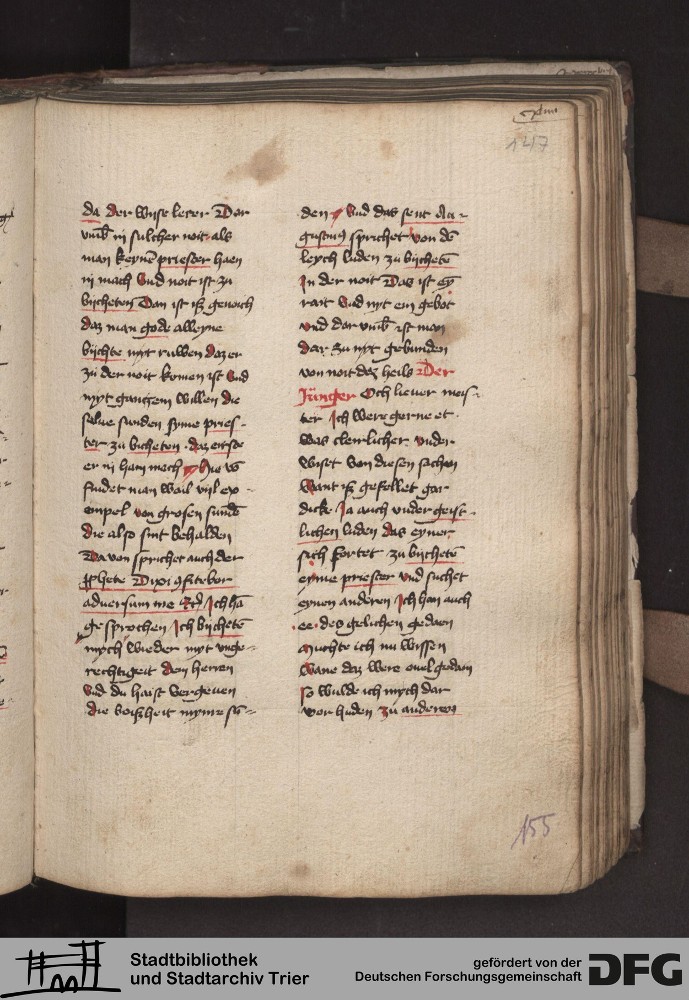 147
da der wyse lerer Dar
vmb in sulcher noit als
man keynē priester haen
in mach Vnd noit ist zu
bijchten Dan ist isz genoich
daz man gode alleyne
bijchte myt ruwen daz er
zu der noit komen ist Vnd
myt gantzem willen die
selue sunden syme pries-
ter zu bichten daz eirste
er in ham mach Hie vō
findet man wail vijl ex-
empel von grosen sundē
die also sint behalden
Da von sprichet auch der
ꝓphete Dixi ꝯfitebor
aduersum me Ich hā
gesprochen Ich bijchetē
mych wieder myt vnge-
rechtigeit dem herren
Vnd du haist vergeuen
die boiszheit myme sū-
den Vnd das sent Au-
gustinꝰ sprichet von dē
leych luden zu bijchetē
In der noit Das ist eȳ
rait Vnd nyt ein gebot
vnd dar vmb ist man
dar zu nyt gebunden
von noit daz heils Der
Jünger Och lieuer meis-
ter Ich were gerne et
was clerlicher vnder
wiset von diesen sachen
Want isz gefellet gar
dicke Ja auch vnder geis-
lichen luden das eyner
sich fortet zu bijchetē
eyme priester vnd suchet
eynen anderen Ich han auch
ee des gelichen gedaen
Muchte ich nu wissen
Wane daz were ouel gedain
so wulde ich mych dar
vor huden zu anderen
155
Stadtbibliothek
und Stadtarchiv Trier
gefördert von der
Deutschen Forschungsgemeinschaft
DFG